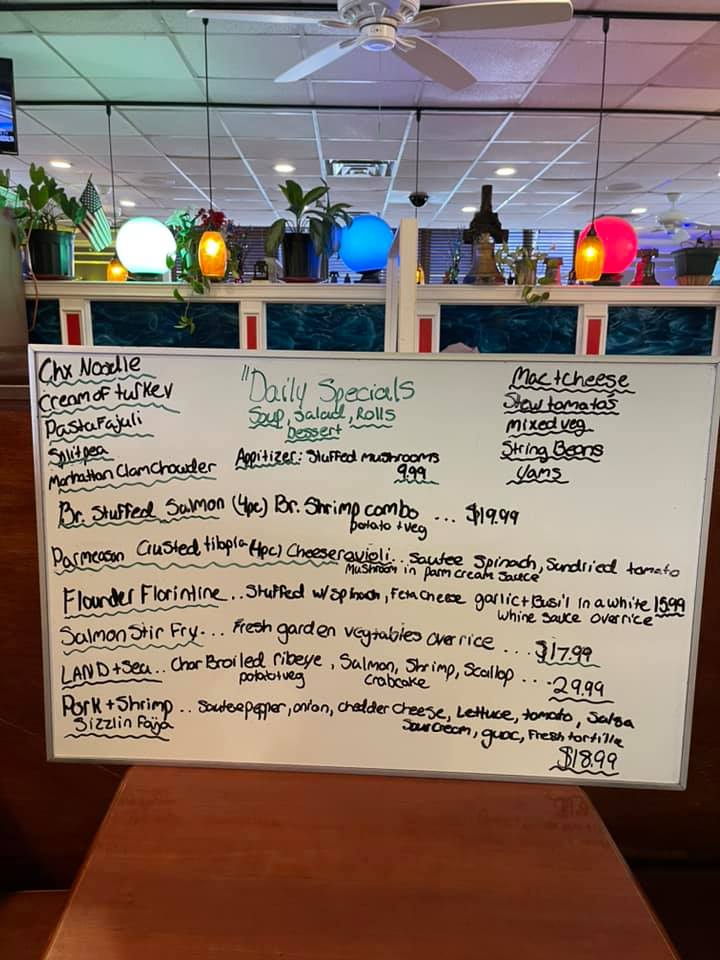 Chx Noodle
Cream of turkey
Pasta Fajuli
Splitpea
Manhattan Clam Chowder
"Daily Specials
Soup, Salad, Rolls
Dessert
Appitizer: Stuffed mushrooms
9.99
Mac + Cheese
Stew tomatos
mixed veg
String Beans
Yams
Br. Stuffed Salmon (4pc) Br. Shrimp combo ... $19.99
potato + veg
Parmeason Crusted tilapia (4pc) Cheese ravioli.. Sautee Spinach, Sundried tomato
Mushroom in parm cream sauce
Flounder Florintine.. Stuffed w/ spinach, Feta cheese garlic + Basi'l in a white 15.99
whine sauce over rice
Salmon Stir Fry... Fresh garden vegtables over rice ... $17.99
LAND + Sea.. Char Broiled ribeye, Salmon, Shrimp, Scallop ... 29.99
potato + veg crabcake
Pork + Shrimp .. Sautee pepper, onion, chedder cheese, Lettuce, tomato, Salsa
Sizzlin Fajja Sour cream, guac, Fresh tortilla
$18.99